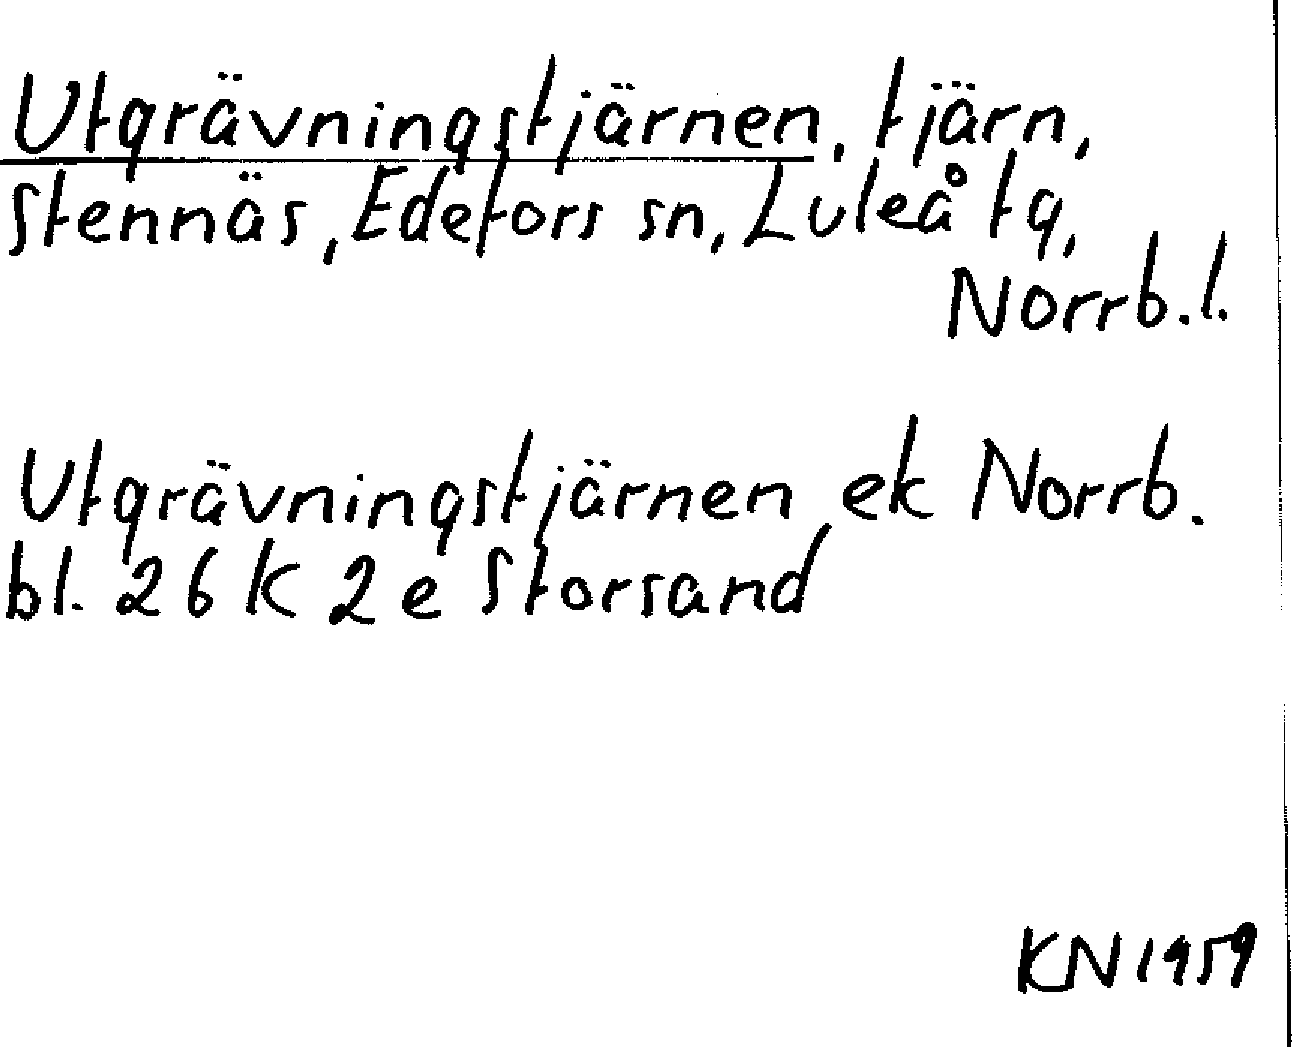 Utgrävningstjärnen, tjärn,
Stennäs, Edefors sn, Luleå tg,
Norrb. l.
Utgrävningstjärnen ek Norrb.
bl. 26 K 2 e Storsand
KN 1959